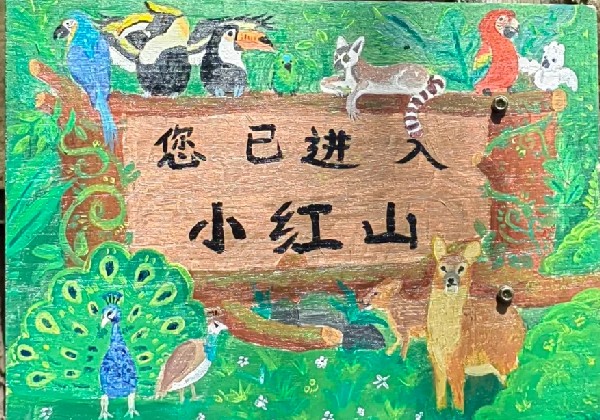 您已进入
小红山